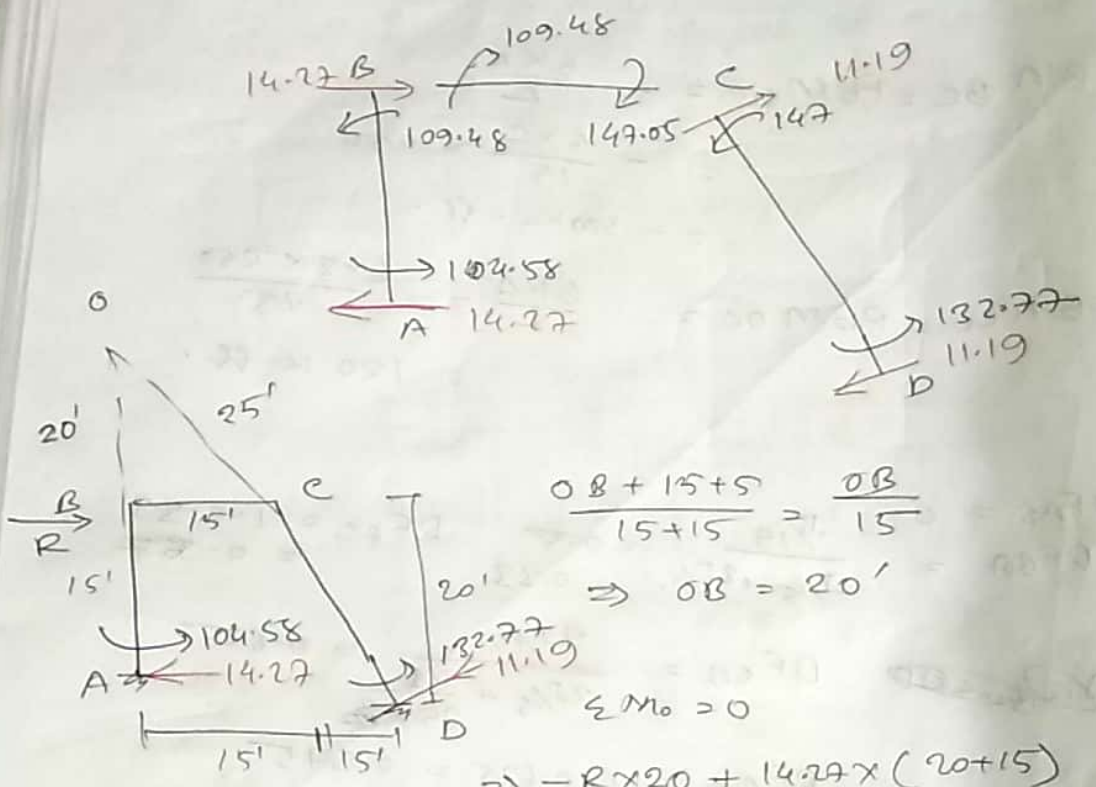 109.48
14.27 B
C 11.19
109.48 147.05 147
104.58
A 14.27
132.77
11.19
D
O
20' 25'
B C
R 15'
15' 20'
104.58 132.77
A 14.27 11.19
D
15' 15'
OB + 15+5 / 15+15 = OB / 15
⇒ OB = 20'
Σ M₀ = 0
⇒ -R×20 + 14.27×(20+15)